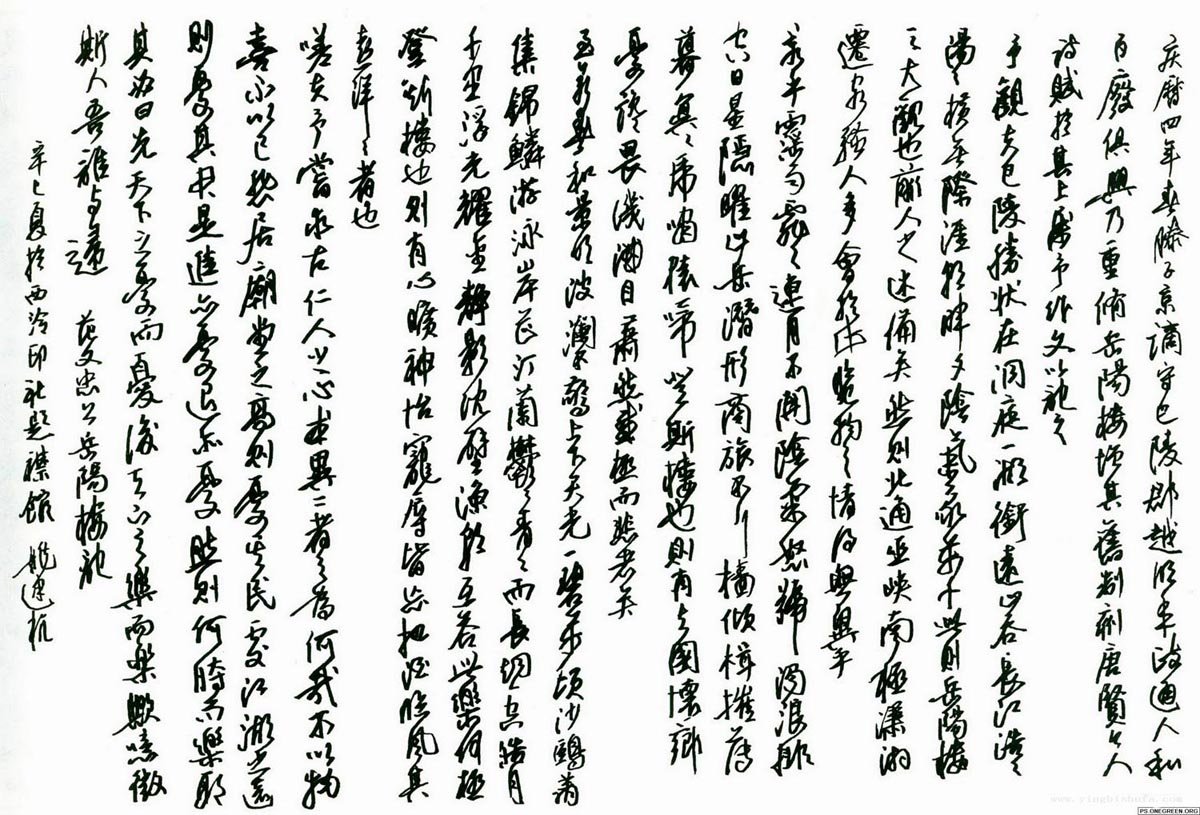 庆曆四年春滕子京謫守巴陵郡越明年政通人和
百廢俱興乃重脩岳陽樓增其舊制刻唐賢今人
詩賦於其上屬予作文以記之
予觀夫巴陵勝狀在洞庭一湖銜遠山吞長江浩々
湯々橫無際涯朝暉夕陰氣象萬千此則岳陽樓
之大觀也前人之述備矣然則北通巫峽南極瀟湘
遷客騷人多會於此覽物之情得無異乎
若夫霪雨霏々連月不開陰風怒號濁浪排
空日星隱曜山岳潛形商旅不行檣傾楫摧薄
暮冥々虎嘯猿啼登斯樓也則有去國懷鄉
憂讒畏譏滿目蕭然感極而悲者矣
至若春和景明波瀾不驚上下天光一碧萬頃沙鷗翔
集錦鱗游泳岸芷汀蘭鬱々青々而長煙一空皓月
千里浮光耀金靜影沈璧漁歌互答此樂何極
登斯樓也則有心曠神怡寵辱皆忘把酒臨風其
喜洋々者也
嗟夫予嘗求古仁人之心或異二者之為何哉不以物
喜不以己悲居廟堂之高則憂其民處江湖之遠
則憂其君是進亦憂退亦憂然則何時而樂耶
其必曰先天下之憂而憂後天下之樂而樂歟噫微
斯人吾誰与歸 范文忠公岳陽樓記
辛巳夏於西泠印社題襟館 姚建杭
www.yingbishufa.com
PS.ONEGREEN.ORG